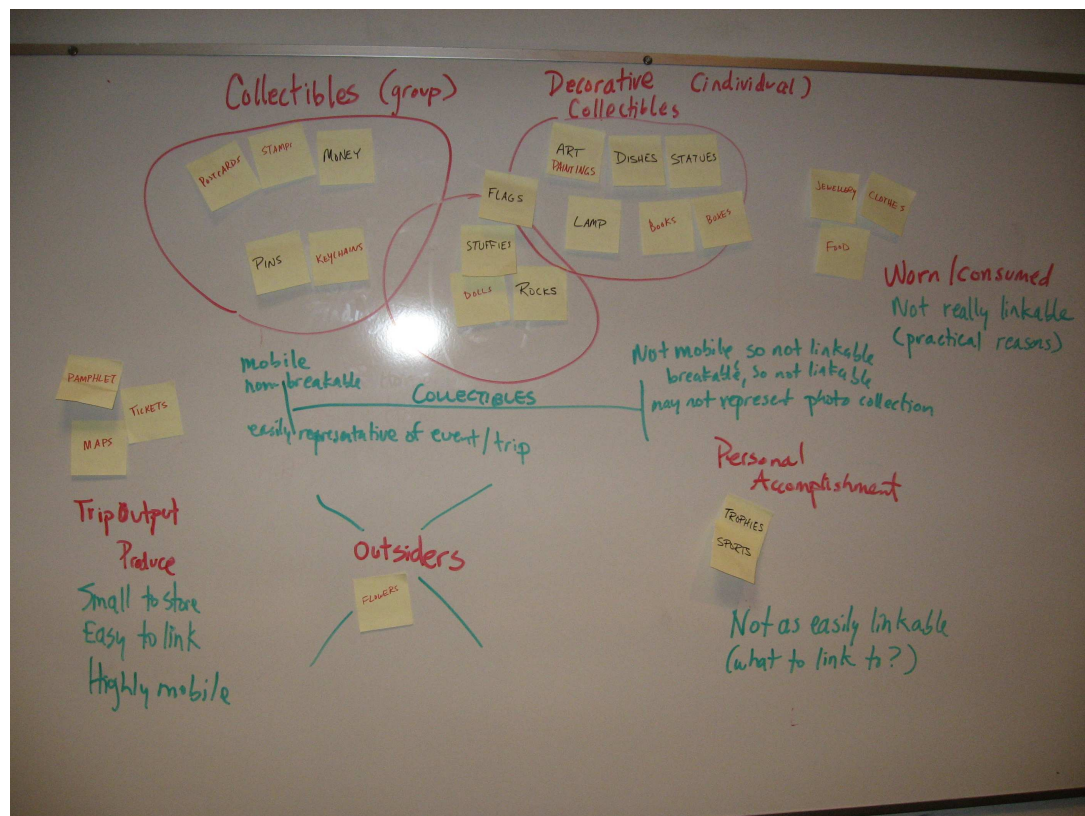 Collectibles (group)
Decorative (individual)
Collectibles
POSTCARDS
STAMPS
MONEY
PINS
KEYCHAINS
FLAGS
STUFFIES
DOLLS
ROCKS
ART
PAINTINGS
DISHES
STATUES
LAMP
BOOKS
BOXES
JEWELLERY
CLOTHES
FOOD
Worn/Consumed
Not really linkable
(practical reasons)
mobile
non-breakable
COLLECTIBLES
easily representative of event/trip
Not mobile, so not linkable
breakable, so not linkable
may not represent photo collection
PAMPHLET
TICKETS
MAPS
Trip Output
Produce
Small to store
Easy to link
Highly mobile
Outsiders
FLOWERS
Personal
Accomplishment
TROPHIES
SPORTS
Not as easily linkable
(what to link to?)